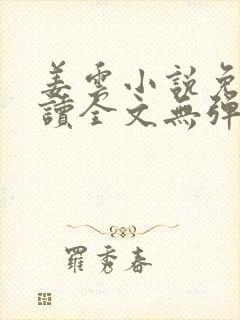 姜雲小說免
讀全文無彈
羅秀春